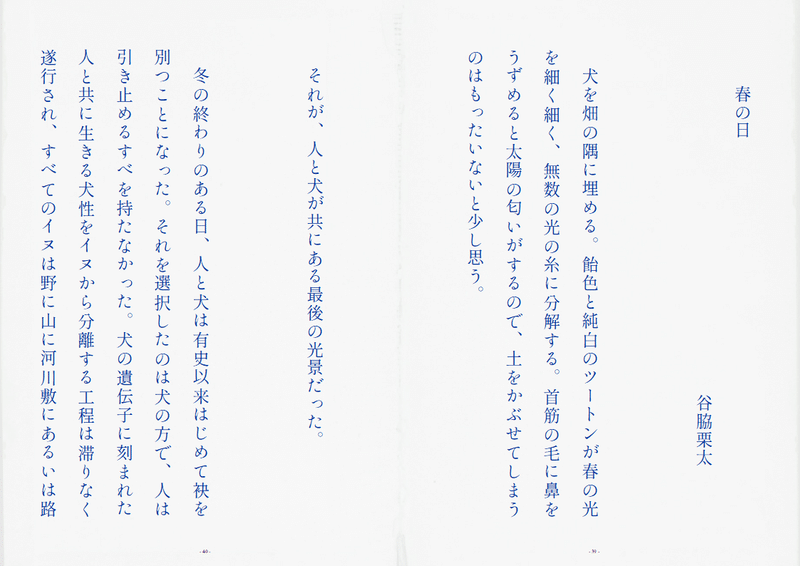 春の日
谷脇栗太
犬を畑の隅に埋める。飴色と純白のツートンが春の光
を細く細く、無数の光の糸に分解する。首筋の毛に鼻を
うずめると太陽の匂いがするので、土をかぶせてしまう
のはもったいないと少し思う。
- 39 -
それが、人と犬が共にある最後の光景だった。
冬の終わりのある日、人と犬は有史以来はじめて袂を
別つことになった。それを選択したのは犬の方で、人は
引き止めるすべを持たなかった。犬の遺伝子に刻まれた
人と共に生きる犬性をイヌから分離する工程は滞りなく
遂行され、すべてのイヌは野に山に河川敷にあるいは路
- 40 -